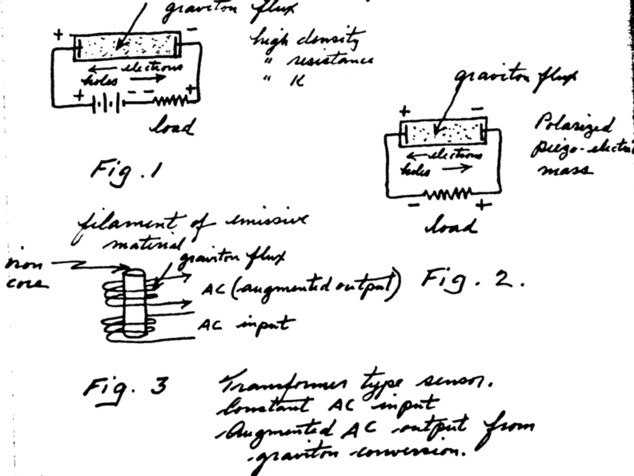 graviton flux
+ -
high density
" resistance
" K
← electrons
holes →
+ - - +
load
Fig. 1
graviton flux
+ -
Polarized
piezo-electric
mass
← electrons
holes →
- +
load
Fig. 2.
filament of emissive
material
graviton flux
iron
core
AC (augmented output)
AC input
Fig. 3
Transformer type sensor.
Constant AC input
Augmented AC output from
graviton conversion.